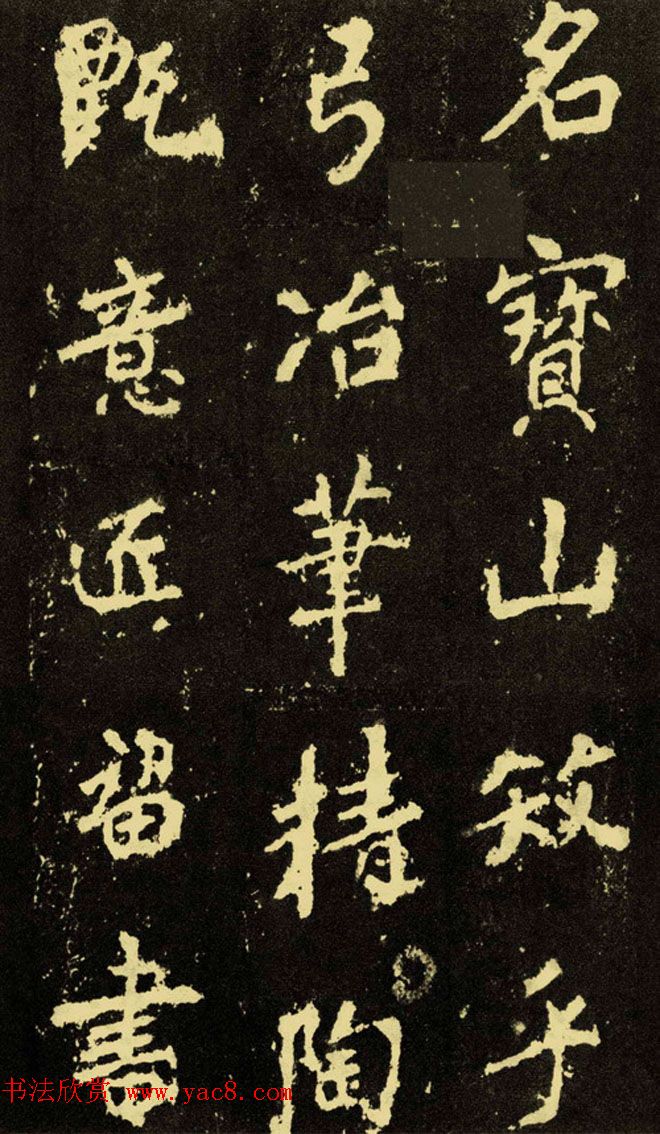 名寶山效乎
弓冶筆精陶
甄意匠留書
书法欣赏 www.yac8.com